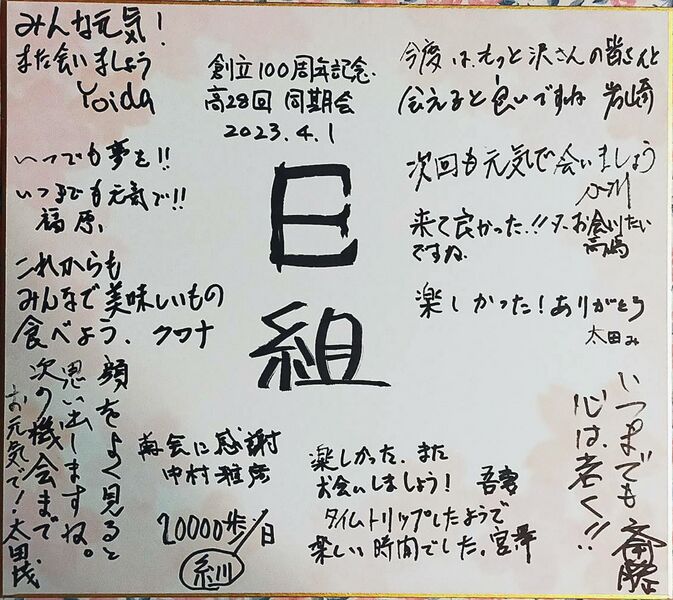 みんな元気！
また会いましょう
Yoida
創立100周年記念
高28回 同期会
2023.4.1
今度は、もっと沢さんの皆さんと
会えると良いですね 岩崎
いつでも夢を!!
いつまでも元気で!!
福原、
日
組
次回も元気で会いましょう
来て良かった!!又、お会いしたい
ですね。
高嶋
これからも
みんなで美味しいもの
食べよう、クワナ
楽しかった！ありがとう
太田み
顔をよく見ると
思い出しますね。
次の機会まで
お元気で！太田茂
再会に感謝
中村雅彦
20000歩/日
糸川
楽しかった、また
お会いしましょう！ 吾妻
タイムトリップしたようで
楽しい時間でした。宮澤
いつまでも
心は若く!!
斎藤